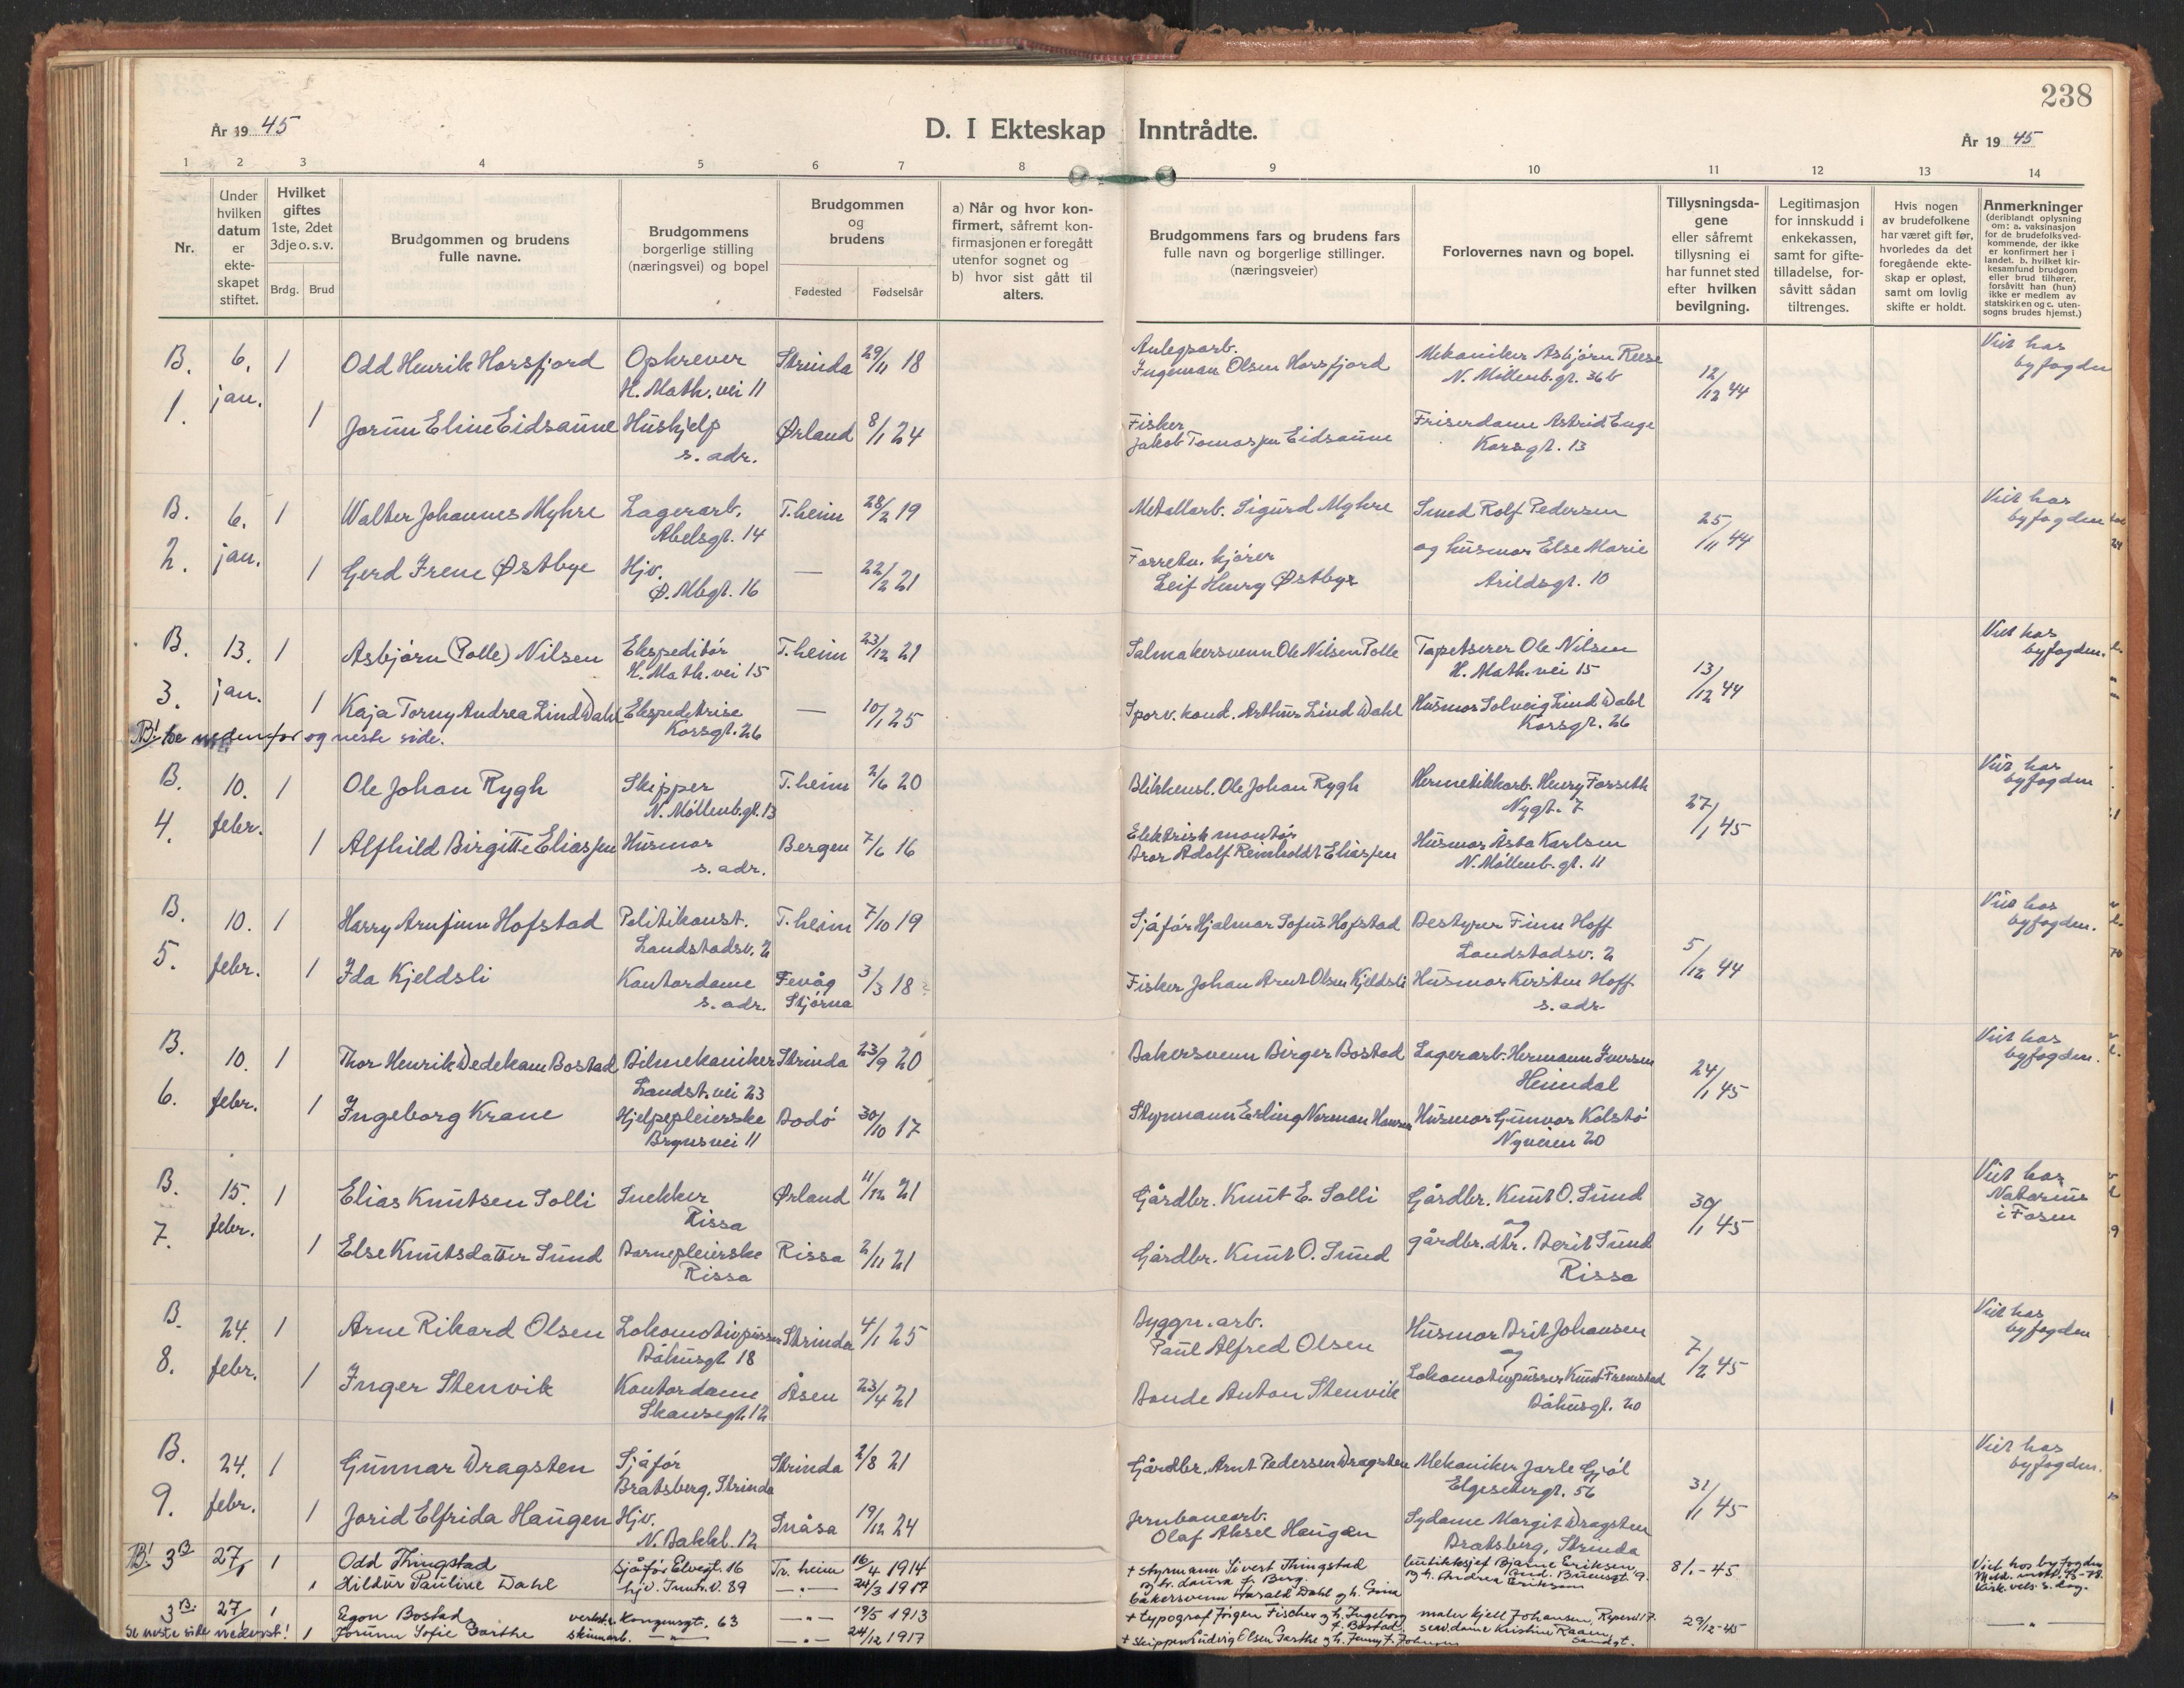 238
År 1945
D. I Ekteskap Inntrådte.
År 1945
1 2 3 4 5 6 7 8 9 10 11 12 13 14
Nr.
Under hvilken datum er ekteskapet stiftet.
Hvilket giftes 1ste, 2det 3dje o. s. v.
Brdg. Brud
Brudgommen og brudens fulle navne.
Brudgommens borgerlige stilling (næringsvei) og bopel
Brudgommen og brudens
Fødested Fødselsår
a) Når og hvor konfirmert, såfremt konfirmasjonen er foregått utenfor sognet og
b) hvor sist gått til alters.
Brudgommens fars og brudens fars fulle navn og borgerlige stillinger. (næringsveier)
Forlovernes navn og bopel.
Tillysningsdagene eller såfremt tillysning ei har funnet sted efter hvilken bevilgning.
Legitimasjon for innskudd i enkekassen, samt for giftetilladelse, forsåvitt sådan tiltrenges.
Hvis nogen av brudefolkene har været gift før, hvorledes da det foregående ekteskap er opløst, samt om lovlig skifte er holdt.
Anmerkninger (deriblandt oplysning om: a. vaksinasjon for de brudefolks vedkommende, der ikke er konfirmert her i landet. b. hvilket kirkesamfund brudgom eller brud tilhører, forsåvitt han (hun) ikke er medlem av statskirken og c. utensogns brudes hjemst.)
B. 6. 1 Odd Henrik Horsfjord Opkrever Strinda 29/11 18 Anlegsarb. Ingeman Olsen Horsfjord Mekaniker Asbjørn Reese 12/12 44 Viet hos byfogden
H. Math. vei 11 N. Möllenb. gt. 36 b
1. jan. 1 Jorun Eline Eidsaune Hushjelp Ørland 8/1 24 Fisker Jakob Tomassen Eidsaune Friserdame Astrid Enge
s. adr. Korsgt. 13
B. 6. 1 Walter Johannes Myhre Lagerarb. T.heim 28/2 19 Metallarb. Sigurd Myhre Smed Rolf Pedersen 25/11 44 Viet hos byfogden
Abelsgt. 14
2. jan. 1 Gerd Irene Østbye Hjv. — 22/2 21 Forretn. kjører Leif Henry Østbye og husmor Else Marie
Ø. Mbgt. 16 Arildsgt. 10
B. 13. 1 Asbjørn (Polle) Nilsen Ekspeditör T.heim 23/12 21 Salmakersvenn Ole Nilsen Polle Tapetserer Ole Nilsen 13/12 44 Viet hos byfogden.
H. Math. vei 15 H. Math. vei 15
3. jan. 1 Kaja Torny Andrea Lind Dahl Ekspeditrise — 10/1 25 Sporv. kond. Arthur Lind Dahl Husmor Solveig Lind Dahl
Korsgt. 26 Korsgt. 26
NB! Se nedenfor og neste side.
B. 10. 1 Ole Johan Rygh Skipper T.heim 2/6 20 Blikkensl. Ole Johan Rygh Hermetikkarb. Henry Forseth 27/1 45 Viet hos byfogden
N. Möllenb. gt. 13 Nygt. 7
4. febr. 1 Alfhild Birgitte Eliassen Husmor Bergen 7/6 16 Elektrisk montör Bror Adolf Reinholdt Eliassen Husmor Åsta Karlsen
s. adr. N. Möllenb. gt. 11
B. 10. 1 Harry Arnfinn Hofstad Politikonst. T.heim 7/10 19 Sjåför Hjalmar Sofus Hofstad Bestyrer Finn Hoff 5/12 44 Viet hos byfogden.
Landstadsv. 2 Landstadsv. 2
5. febr. 1 Ida Kjeldsli Kontordame Fevåg Stjørna 3/3 18 Fisker Johan Arnt Olsen Kjeldsli Husmor Kirsten Hoff
s. adr. s. adr.
B. 10. 1 Thor Henrik Dedekam Bostad Bilmekaniker Strinda 23/9 20 Bakersvenn Birger Bostad Lagerarb. Hermann Iversen 24/1 45 Viet hos byfogden.
Landst. vei 23 Heimdal
6. febr. 1 Ingeborg Krane Hjelpepleierske Bodö 30/10 17 Styrmann Erling Norman Hansen Husmor Gunvor Kolstö
Brynsvei 11 Nyveien 20
B. 15. 1 Elias Knutsen Solli Snekker Ørland 11/12 21 Gårdbr. Knut E. Solli Gårdbr. Knut O. Sund 30/1 45 Viet hos Notarius i Fosen
Rissa og
7. febr. 1 Else Knutsdatter Sund Barnepleierske Rissa 2/11 21 Gårdbr. Knut O. Sund gårdbr. dtr. Berit Sund
Rissa Rissa
B. 24. 1 Arne Rikard Olsen Lokomotivpusser Strinda 4/1 25 Byggn. arb. Paul Alfred Olsen Husmor Brit Johansen 7/2 45 Viet hos byfogden
Båhusgt 18 og
8. febr. 1 Inger Stenvik Kontordame Åsen 23/4 21 Bonde Anton Stenvik Lokomotivpusser Knut Fremstad
Skansegt. 12 Båhusgt. 20
B. 24. 1 Gunnar Dragsten Sjåför Strinda 2/8 21 Gårdbr. Arnt Pedersen Dragsten Mekaniker Jarle Gjöl 31/1 45 Viet hos byfogden.
Bratsberg, Strinda Elgesetergt. 56
9. febr. 1 Jorid Elfrida Haugen Hjv. Snåsa 19/12 24 Jernbanearb. Olaf Aksel Haugen Sydame Margit Dragsten
N. Bakkl. 12 Bratsberg, Strinda
NB! 3B 27/1 1 Odd Thingstad sjåför Elvegt. 16 Tr.heim 16/4 1914 + styrmann Sivert Thingstad butikksjef Bjarne Eriksen 8/1-45 Viet hos byfogden
1 Hildur Pauline Dahl hjv. Innh. v. 89 —"— 24/3 1917 bakersvenn Harald Dahl og h. og h. Andrea Eriksen
3B 27/1 1 Egon Bostad verkstr. Kongensgt. 63 —"— 19/5 1913 + typograf Jörgen Fischer og h. Ingeborg f. Bostad. maler Kjell Johansen, 29/12-45 —"—
Se neste side nederst! 1 Jorunn Sofie Garthe skinnarb. —"— —"— 24/12 1917 + skipper Ludvig Olsen Garthe og h. Jenny f. Johnsen serv.dame Kristine